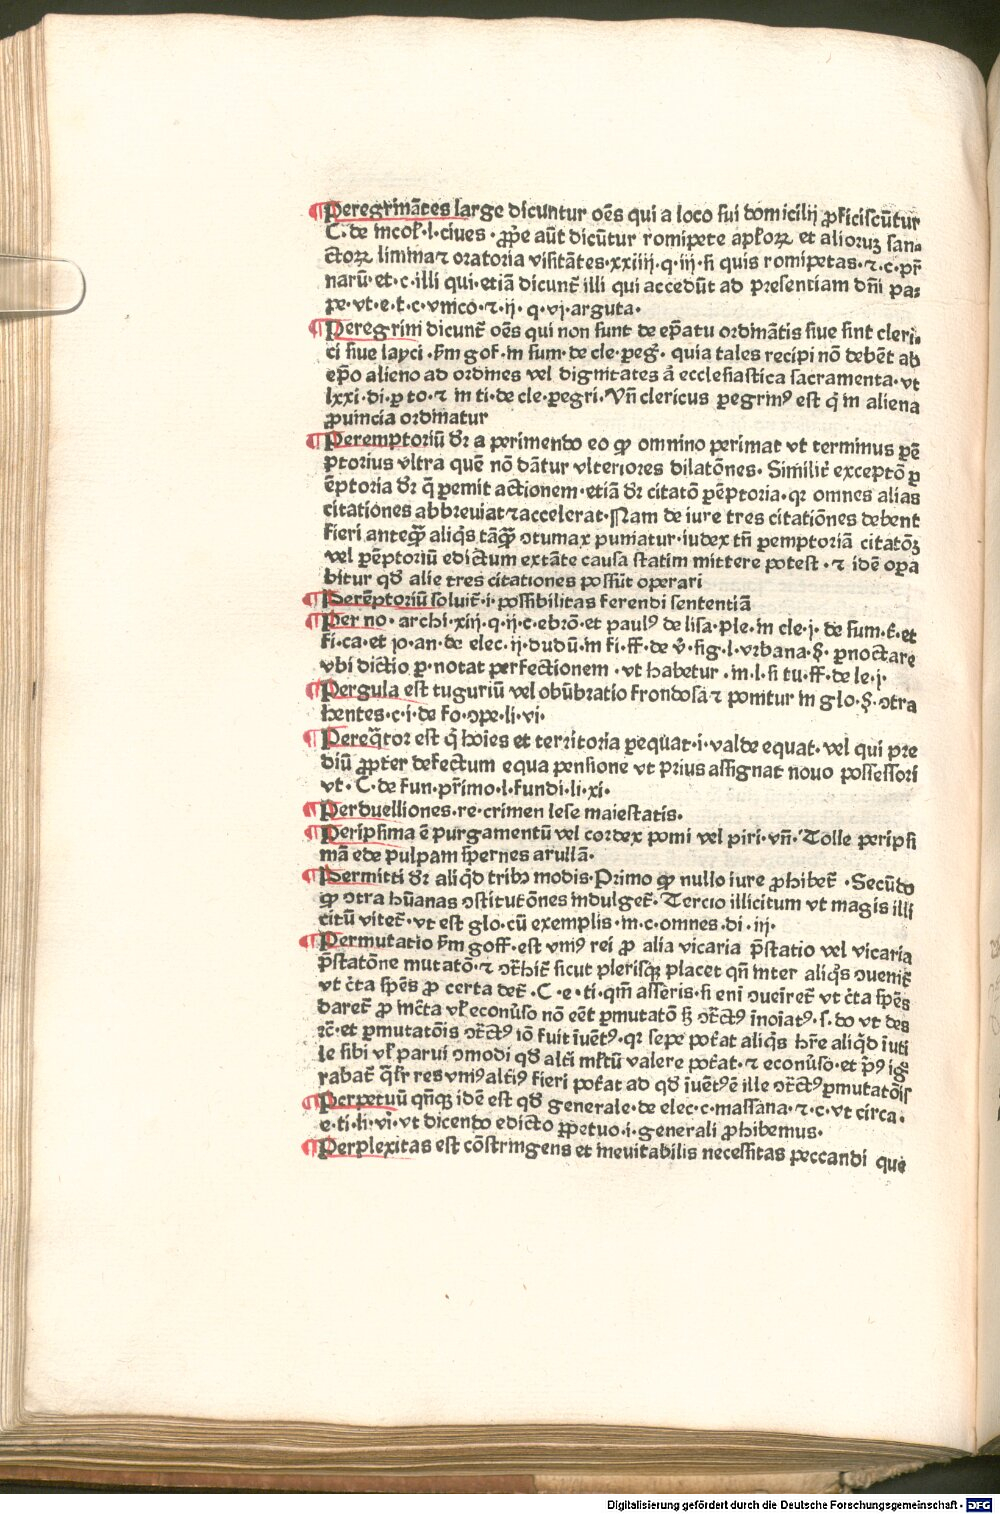 Peregrinãtes large dicuntur oẽs qui a loco sui domicilij ꝓficiscũtur
C. de incol̃·l·ciues · ꝓp̃e aũt dicũtur romipete apl̃oꝝ et alioruꝫ san-
ctoꝝ limina ⁊ oratoria visitãtes·xxiiij·q·iij·si quis romipetas·⁊·c·pr̃
narũ·et·c·illi qui·etiã dicunt̃ illi qui accedũt ad presentiam dñi pa-
pe·vt·e·t·c·vnico·⁊·ij· q·vj·arguta·
Peregrini dicunt̃ oẽs qui non sunt de ep̃atu ordinãtis siue sint cleri-
ci siue layci ·ẜm gof·in sum·de cle·ꝑeg̃· quia tales recipi nõ debẽt ab
ep̃o alieno ad ordines vel dignitates ãͥ ecclesiastica sacramenta·vt
lxxi·di·ꝑ to·⁊ in ti·de cle·ꝑegri·Vñ clericus ꝑegrinꝰ est q̃ in aliena
ꝓuincia ordinatur
Peremptoriũ dr̃ a perimendo eo ꝙ omnino perimat vt terminus ꝑẽ
ptorius vltra quẽ nõ dãtur vlteriores dilatõnes· Similit̃ exceptõ ꝑ
ẽptoria dr̃ q̃ ꝑemit actionem·etiã dr̃ citatõ ꝑẽptoria·qꝛ omnes alias
citatiões abbreuiat ⁊accelerat·Nam de iure tres citatiões debent
fieri anteqͣꝫ aliq̃s tãqͣꝫ ↄtumax puniatur·iudex tñ ꝑemptoriã citatõꝫ
vel ꝑẽptoriũ edictum extãte causa statim mittere potest·⁊ idẽ oꝑa
bitur qd̃ alie tres citationes possũt operari
Perẽptoriũ soluit̃·i·possibilitas ferendi sententiã
Per no· archi·xiij·q·ij·c·ebrõ·et paulꝰ de lisa·ple·in cle·j·de sum·t̃·et
fi·ca·et jo·an·de elec·ij·dudũ·in fi·ff·de v̾·sig·l·vrbana·§·ꝑnoctare
vbi dictio ꝑ·notat perfectionem ·vt habetur ·in·l·si tu·ff·de le·j·
Pergula est tuguriũ vel obũbratio frondosa ⁊ ponitur in glo·§·ↄtra
hentes·c·i·de fo·ↄpe·li·vi·
Pereq̃tor est q̃ hoies et territoria ꝑequat·i·valde equat·vel qui pre
diũ ꝓpter defectum equa pensione vt prius assignat nouo possessori
vt· C·de fun·pr̃imo·l·fundi·li·xi·
Perduelliones·re·crimen lese maiestatis·
Peripsima ẽ purgamentũ vel cordex pomi vel piri·vñ· Tolle peripsi
mã ede pulpam spernes arullã·
Permitti dr̃ aliq̃d tribꝫ modis·Primo ꝙ nullo iure ꝓhibet̃ ·Secũdo
ꝙ ↄtra hũanas ↄstitutõnes indulget̃·Tercio illicitum vt magis illi
citũ vitet̃·vt est glo·cũ exemplis·in·c·omnes·di·iij·
Permutatio ẜm goff·est vniꝰ rei ꝓ alia vicaria p̃statio vel vicaria
p̃statõne mutatõ·⁊ ↄt̃hit̃ sicut plerisqꝫ placet qñ inter aliq̃s ↄuenit̃
vt c̃ta sp̃es ꝓ certa det̃ ·C·e·ti·qm̃ asseris·si eni ↄueiret̃ vt c̃ta sp̃es
daret̃ ꝓ inc̃ta vl̃ econũso nõ eẽt ꝑmutatõ sꝫ ↄt̃ctꝰ inoiatꝰ·s·do vt des
⁊c̃·et ꝑmutatõis ↄt̃ctꝰ iõ fuit ĩuẽtꝰ·qꝛ sepe pot̃at aliq̃s hr̃e aliq̃d ĩuti
le sibi vl̃ parui ↄmodi qd̃ alt̃i ml̃tũ valere pot̃at·⁊ econũso·et p̃ꝰ ig̃
rabat̃ q̃lr̃ res vniꝰ altiꝰ fieri pot̃at ad qd̃ ĩuẽtꝰ ẽ ille ↄt̃ctꝰ ꝑmutatõis
Perpetuũ qñqꝫ idẽ est qd̃ generale·de elec·c·massana·⁊·c·vt circa·
e·ti·li·vi·vt dicendo edicto ꝑpetuo·i·generali ꝓhibemus·
Perplexitas est cõstringens et ineuitabilis necessitas peccandi que
Digitalisierung gefördert durch die Deutsche Forschungsgemeinschaft - DFG